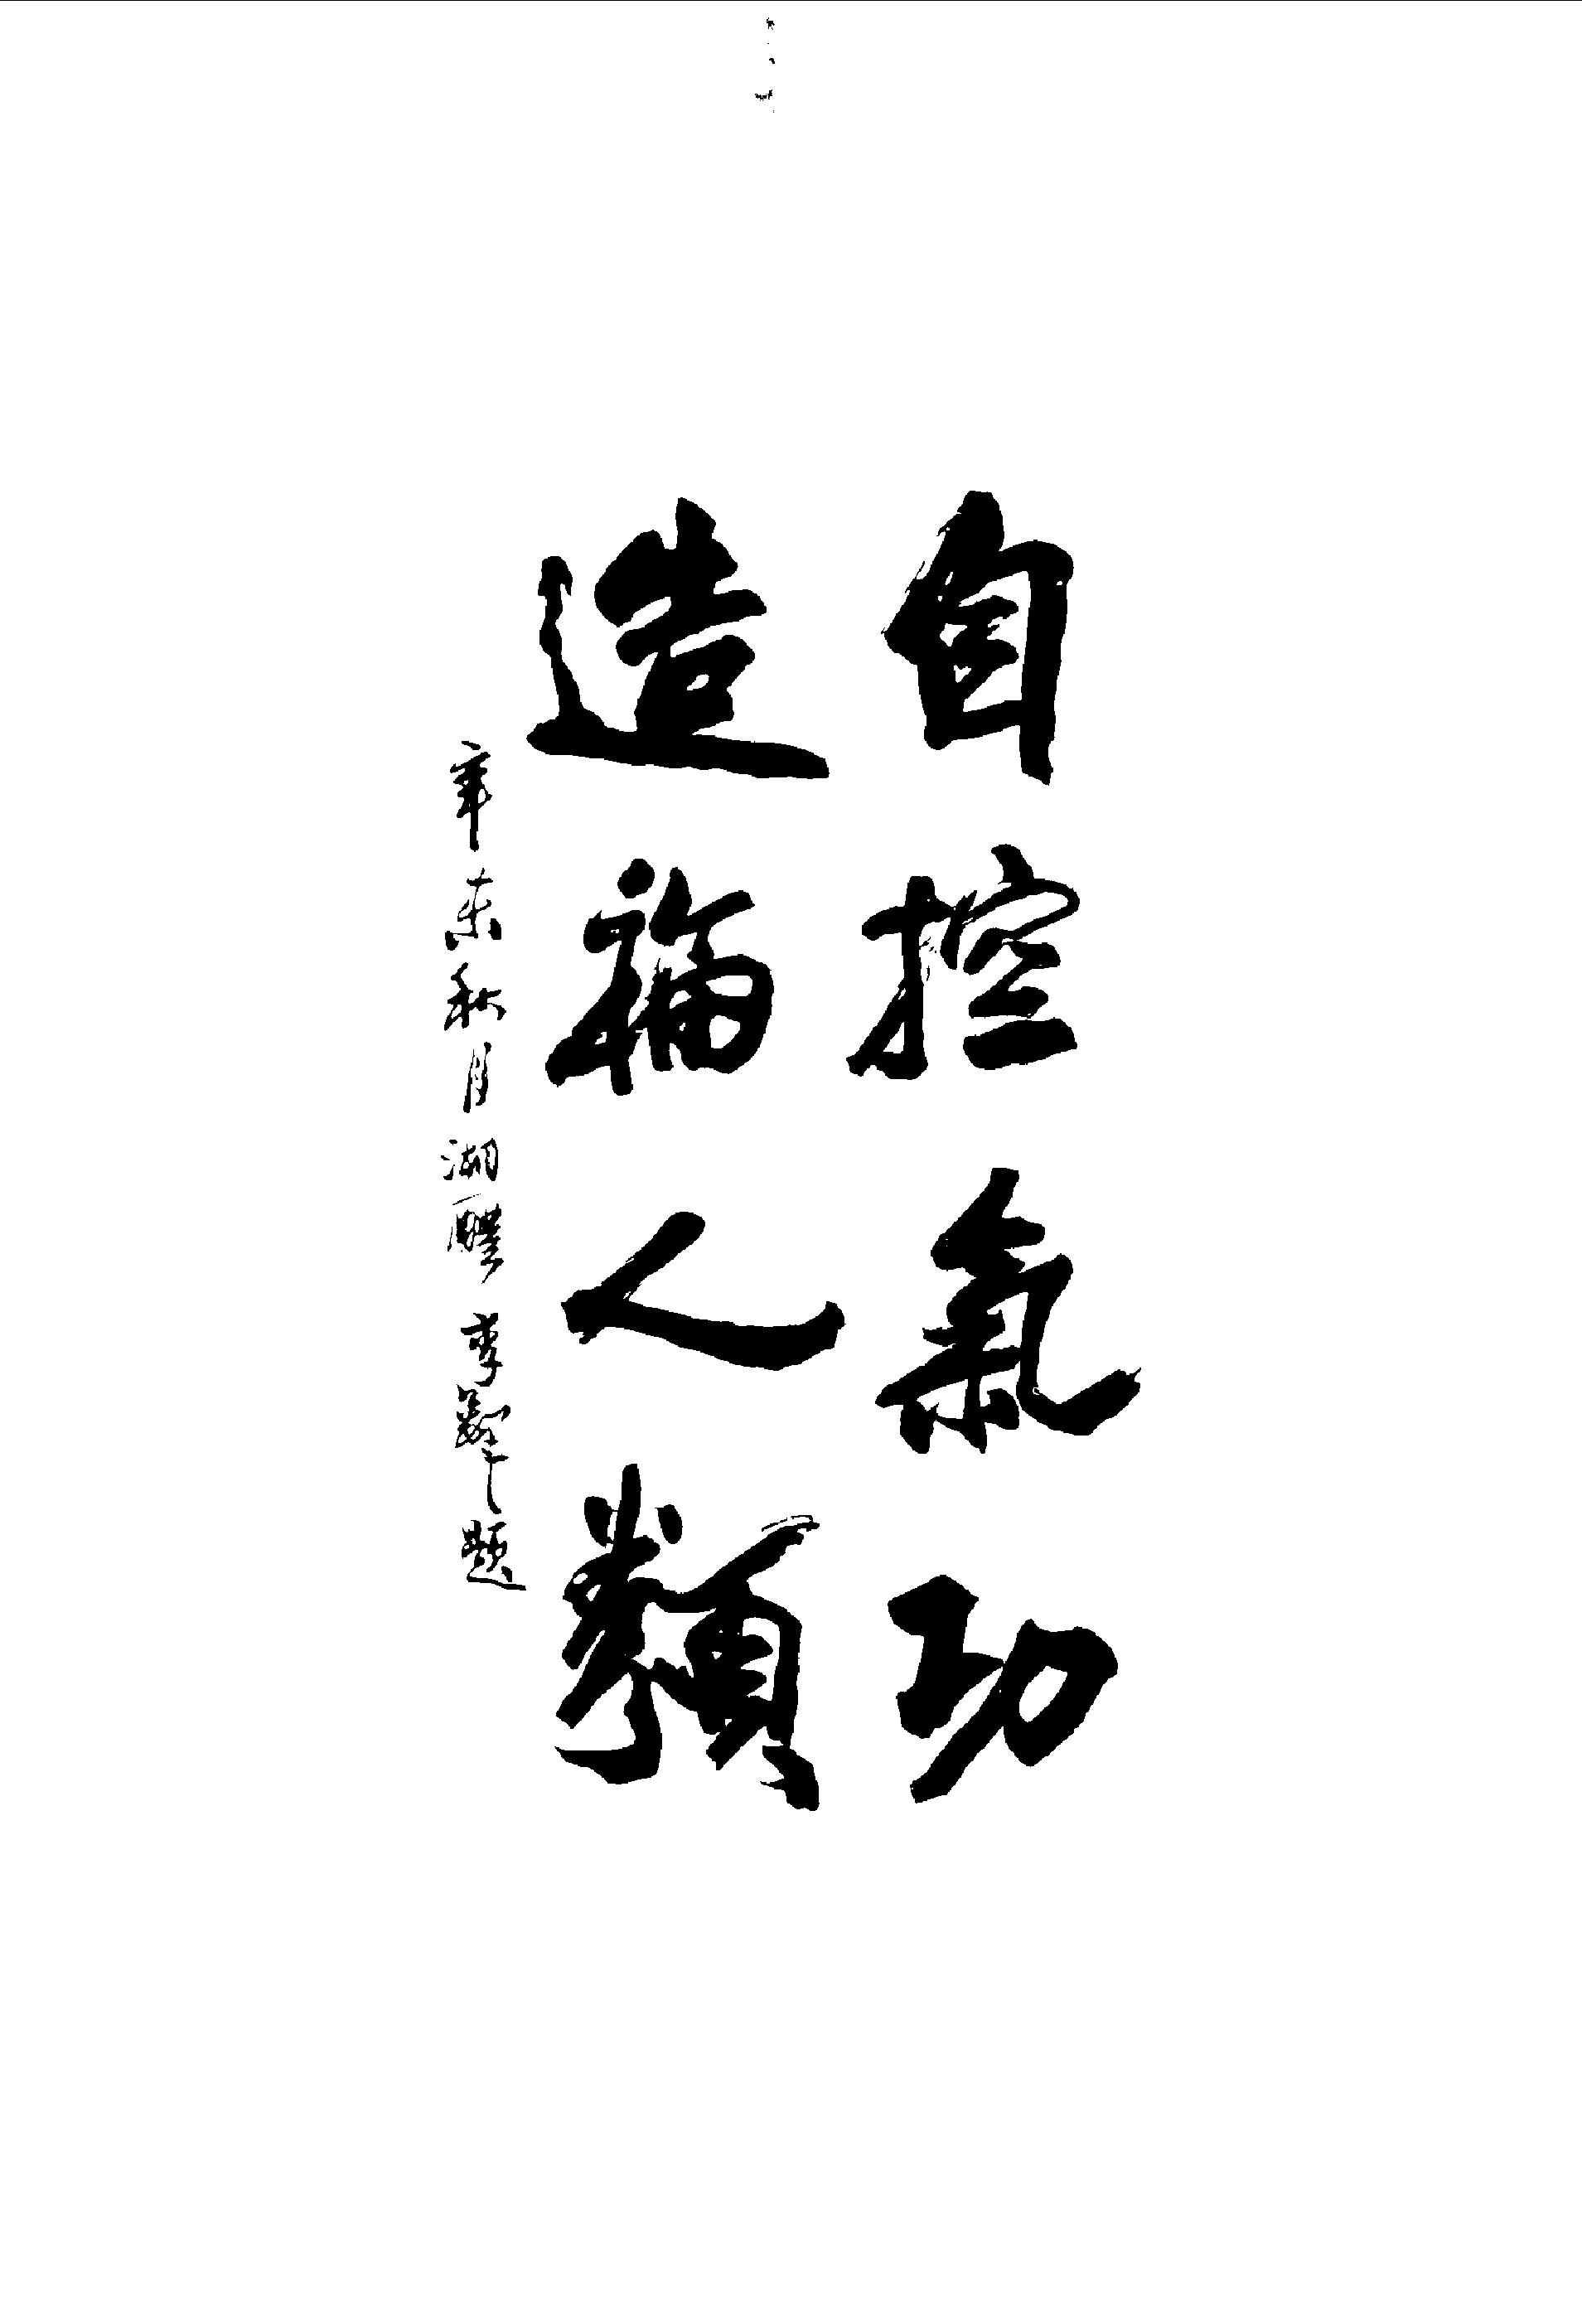 自控氣功
造福人類
辛未秋月湖醴李題